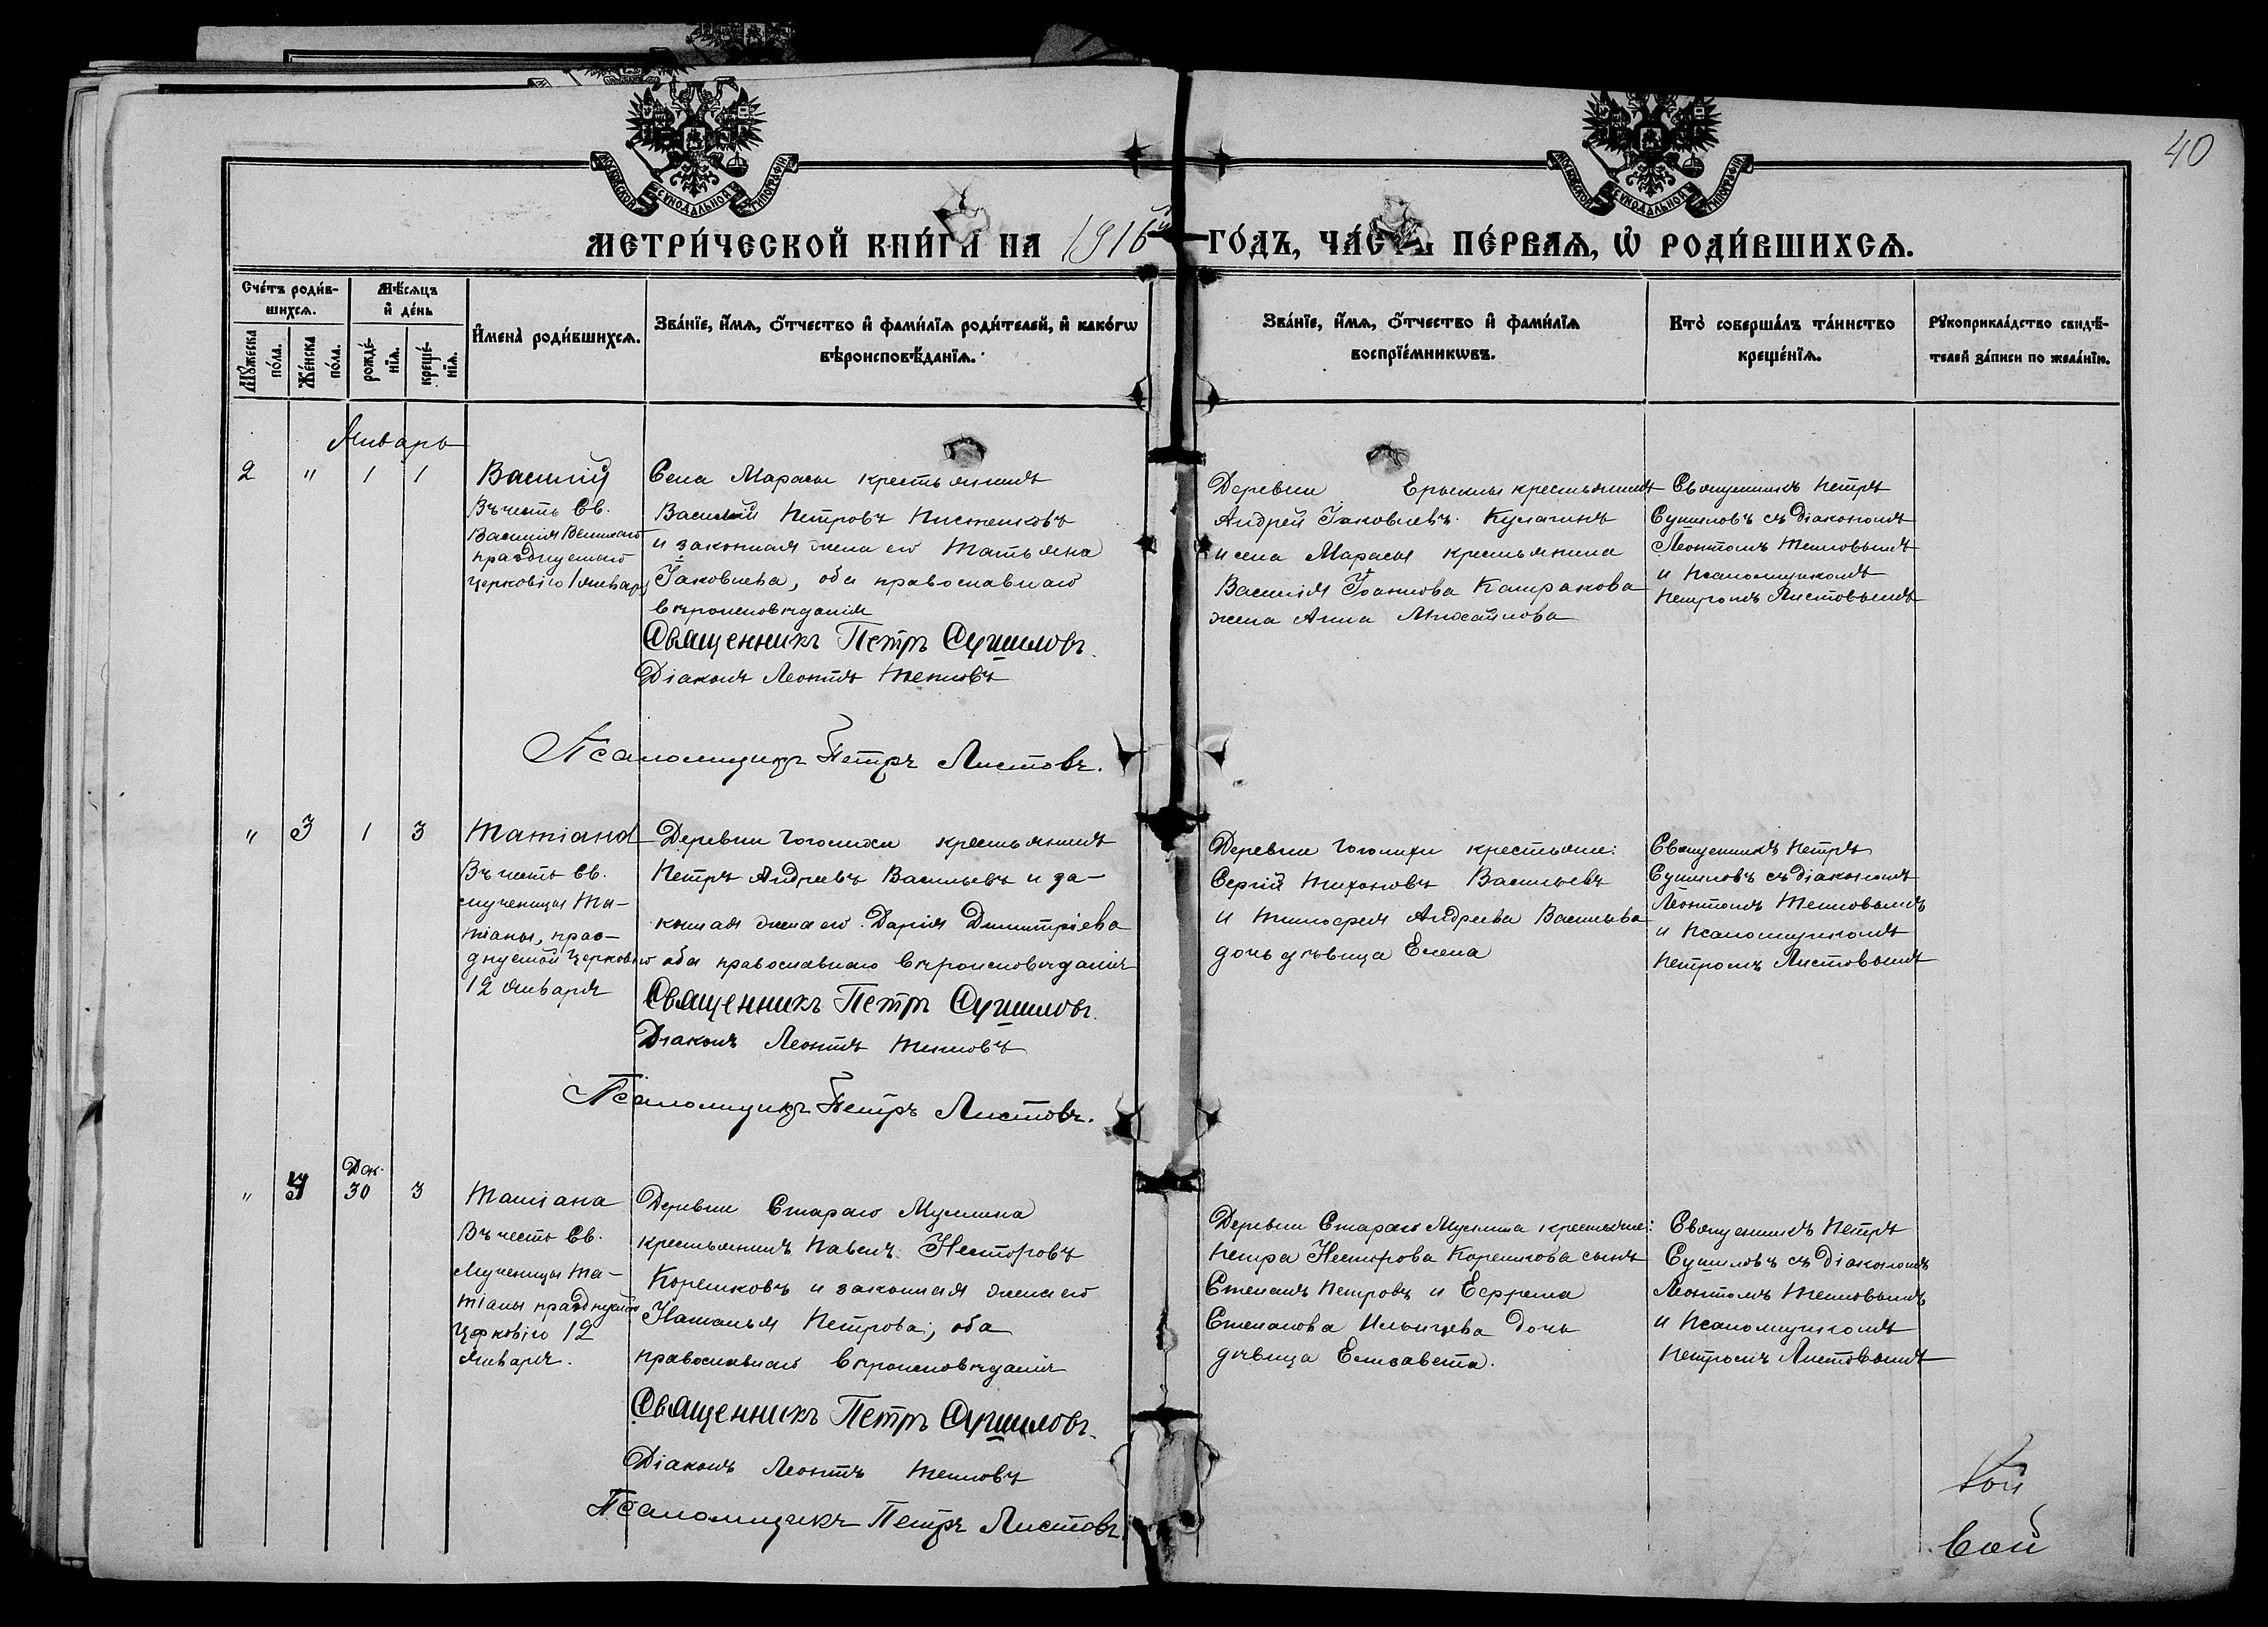 40
МОСКОВСКОЙ СѴНОДАЛЬНОЙ ТИПОГРАФІИ
МОСКОВСКОЙ СѴНОДАЛЬНОЙ ТИПОГРАФІИ
МЕТРИ́ЧЕСКОЙ КНИ́ГИ НА 1916й ГО́ДЪ, ЧА́СТЬ ПЕ́РВАѦ, Ѡ҆ РОДИ́ВШИХСѦ.
Сче́тъ роди́в-
шихсѧ.
Мꙋ́жеска по́ла.
Же́нска по́ла.
Мѣ́сѧцъ
и҆ де́нь
рожде́-
нїѧ.
креще́-
нїѧ.
И҆мена̀ роди́вшихсѧ.
Зва́нїе, и҆́мѧ, ѻ҆́тчество и҆ фами́лїѧ роди́телей, и҆ како́гѡ
вѣроисповѣ́данїѧ.
Зва́нїе, и҆́мѧ, ѻ҆́тчество и҆ фами́лїѧ
воспрїе́мникѡвъ.
Кто̀ соверша́лъ та́инство
креще́нїѧ.
Рꙋкоприкла́дство свидѣ́-
телей за́писи по жела́нїю.
Январь
2 " 1 1
Василій
Въ честь Св.
Василія Великаго
празднуемаго
Церковію 1 января
Села Марасы крестьянинъ
Василій Петровъ
и законная жена его Татьяна
Іаковлева, оба православнаго
вѣроисповѣданія
Священникъ Петръ Сушиловъ.
Діаконъ Леонтъ Тепловъ
Псаломщикъ Петръ Листовъ.
Деревни Ерыклы крестьянинъ
Андрей Іаковлевъ Кулагинъ
и села Марасы крестьянина
Василія Іоаннова Капракова
жена Анна Михайлова
Священникъ Петръ
Сушиловъ съ діакономъ
Леонтомъ Тепловымъ
и псаломщикомъ
Петромъ Листовымъ
" 3 1 3
Татіана
Въ честь Св.
мученицы Та-
тіаны, праз-
днуемой Церковію
12 января
Деревни Гоголихи крестьянинъ
Петръ Андреевъ Васильевъ и за-
конная жена его Дарія Димитріева
оба православнаго вѣроисповѣданія
Священникъ Петръ Сушиловъ.
Діаконъ Леонтъ Тепловъ
Псаломщикъ Петръ Листовъ.
Деревни Гоголихи крестьяне:
Сергій Тихоновъ Васильевъ
и Тимофея Андреева Васильева
дочь дѣвица Елена
Священникъ Петръ
Сушиловъ съ діакономъ
Леонтомъ Тепловымъ
и псаломщикомъ
Петромъ Листовымъ
" 4 Дек. 30 3
Татіана
Въ честь Св.
Мученицы Та-
тіаны празднуемой
Церковію 12
января.
Деревни Стараго Муллина
крестьянинъ Павелъ Несторовъ
Корешковъ и законная жена его
Наталья Петрова, оба
православнаго вѣроисповѣданія
Священникъ Петръ Сушиловъ.
Діаконъ Леонтъ Тепловъ
Псаломщикъ Петръ Листовъ.
Деревни Стараго Муллина крестьяне:
Петра Несторова Корешкова сынъ
Степанъ Петровъ и Ефрема
Степанова Ильичева дочь
дѣвица Елисавета.
Священникъ Петръ
Сушиловъ съ діакономъ
Леонтомъ Тепловымъ
и псаломщикомъ
Петромъ Листовымъ